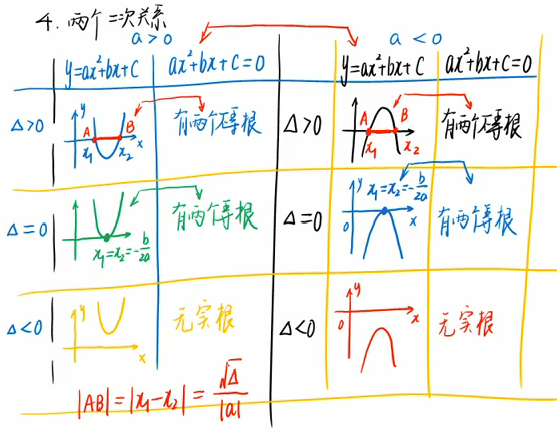 4. 两个二次关系
a > 0
a < 0
y=ax²+bx+c
ax²+bx+c=0
y=ax²+bx+c
ax²+bx+c=0
Δ>0
y
A
B
x₁
x₂
x
有两个不等根
Δ>0
A
B
x₁
x₂
有两个不等根
Δ=0
x₁=x₂=-b/2a
有两个等根
Δ=0
y
x₁=x₂=-b/2a
0
x
有两个等根
Δ<0
y
x
无实根
Δ<0
y
0
x
无实根
|AB|=|x₁-x₂|=√Δ/|a|